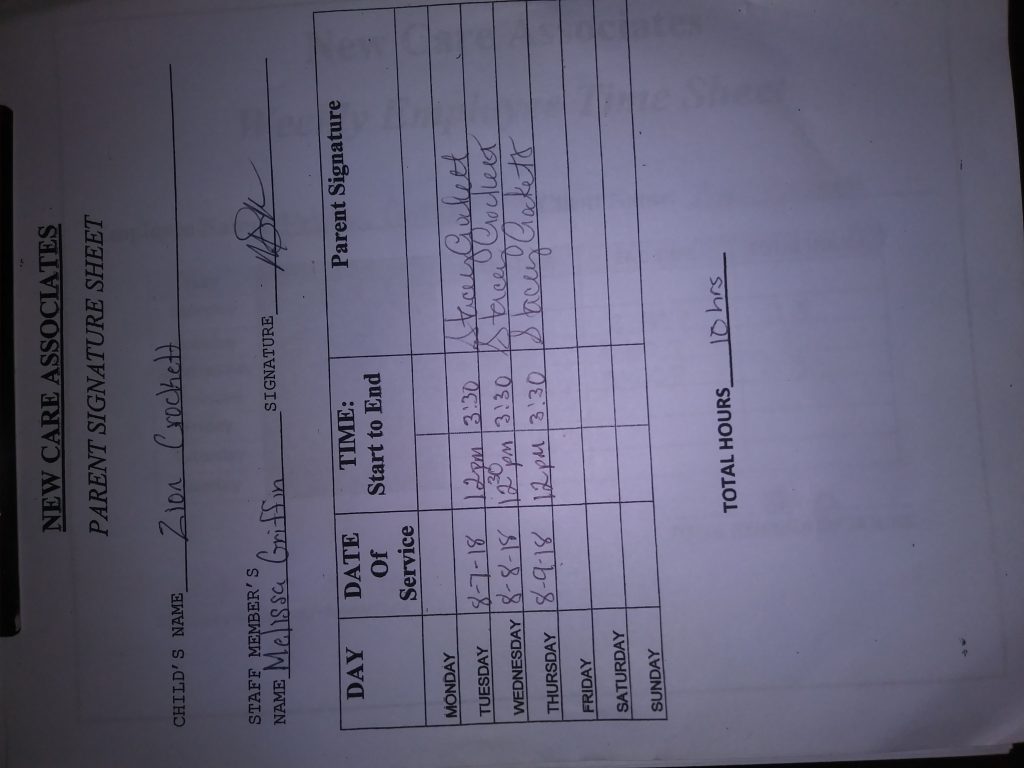 NEW CARE ASSOCIATES
PARENT SIGNATURE SHEET
CHILD'S NAME Zion Crockett
STAFF MEMBER'S
NAME Melissa Griffin SIGNATURE
DAY DATE Of Service TIME: Start to End Parent Signature
MONDAY
TUESDAY 8-7-18 12pm 3:30 Stacey Crockett
WEDNESDAY 8-8-18 12:30 pm 3:30 Stacey Crockett
THURSDAY 8-9-18 12pm 3:30 Stacey Crockett
FRIDAY
SATURDAY
SUNDAY
TOTAL HOURS 10 hrs
New Care Associates
Weekly Employee Time Sheet